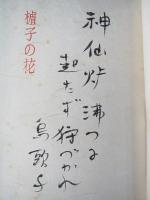 樝子の花
神仙炉沸つに
起たず狩づかれ
烏頭子